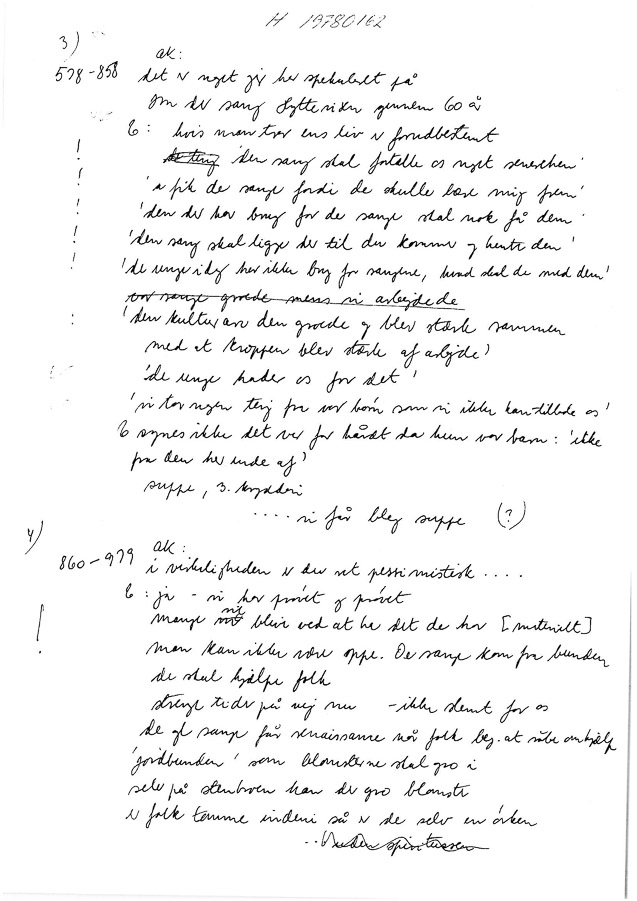 H 19780162
3)
ak:
578-858 det er noget jeg har spekuleret på
Om der sang Lytte gennem 60 å
E: hvis man tror ens liv er forudbestemt
de ting 'den sang skal fortælle os noget senerehen'
'a fik de sange fordi de skulle lære mig frem'
'den der har brug for de sange skal nok få dem'
'den sang skal ligge der til der kommer og henter den'
'de unge idag har ikke brug for sangene, hvad skal de med dem'
vor sange groede mens vi arbejdede
'den kulturarv den groede og blev stærk sammen
med at kroppen blev stærk af arbejde'
'de unge hader os for det'
'vi tog nogen ting fra vor børn som vi ikke kan tilbde os'
E synes ikke det var for hårdt da hun var barn: 'ikke
fra den her ende af'
suppe, 3. krydderi
.... vi får bleg suppe (?)
4)
ak:
860-979 i virkeligheden er du ret pessimistisk ....
E: ja - vi har prøvet og prøvet
mange vil blive ved at ha det de har [materielt]
man kan ikke være oppe. De sange kom fra bunden
de skal hjælpe folk
strenge tider på vej nu - ikke slemt for os
de gl sange får renaissance når folk beg. at råbe om hjælp
'jordbunden' som blomsterne skal gro i
selv på stenbroen kan der gro blomster
er folk tomme indeni så er de selv en ørken